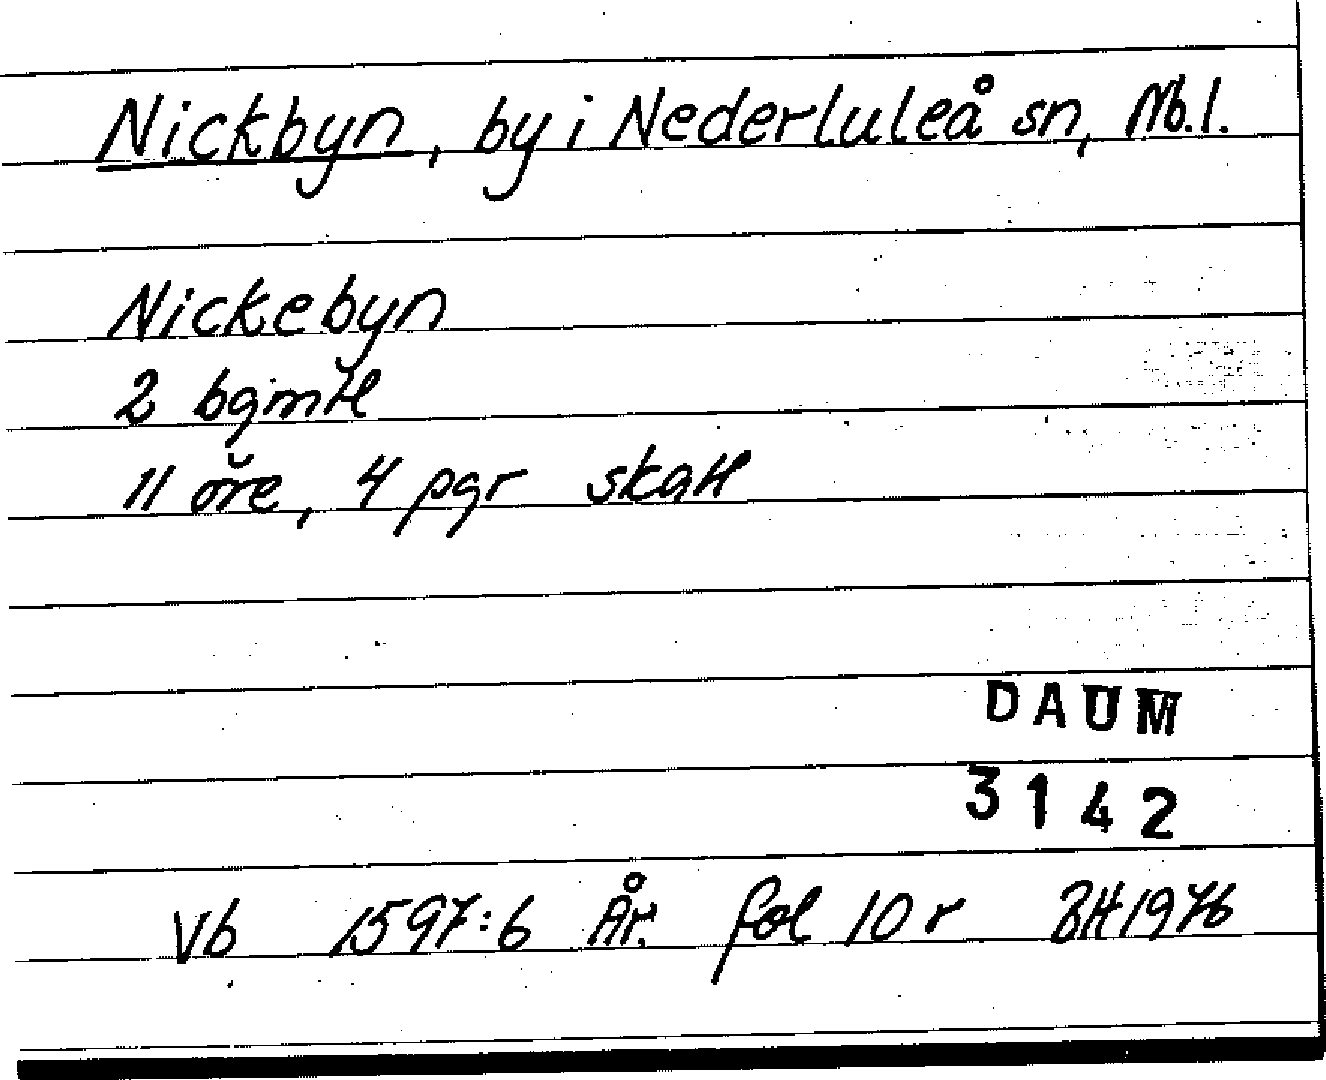 Nickbyn, by i Nederluleå sn, Nb.l.
Nickebyn
2 bgmtl
11 öre, 4 pgr skatt
DAUM
3142
Vb 1597:6 År. fol 10 r BH 1976